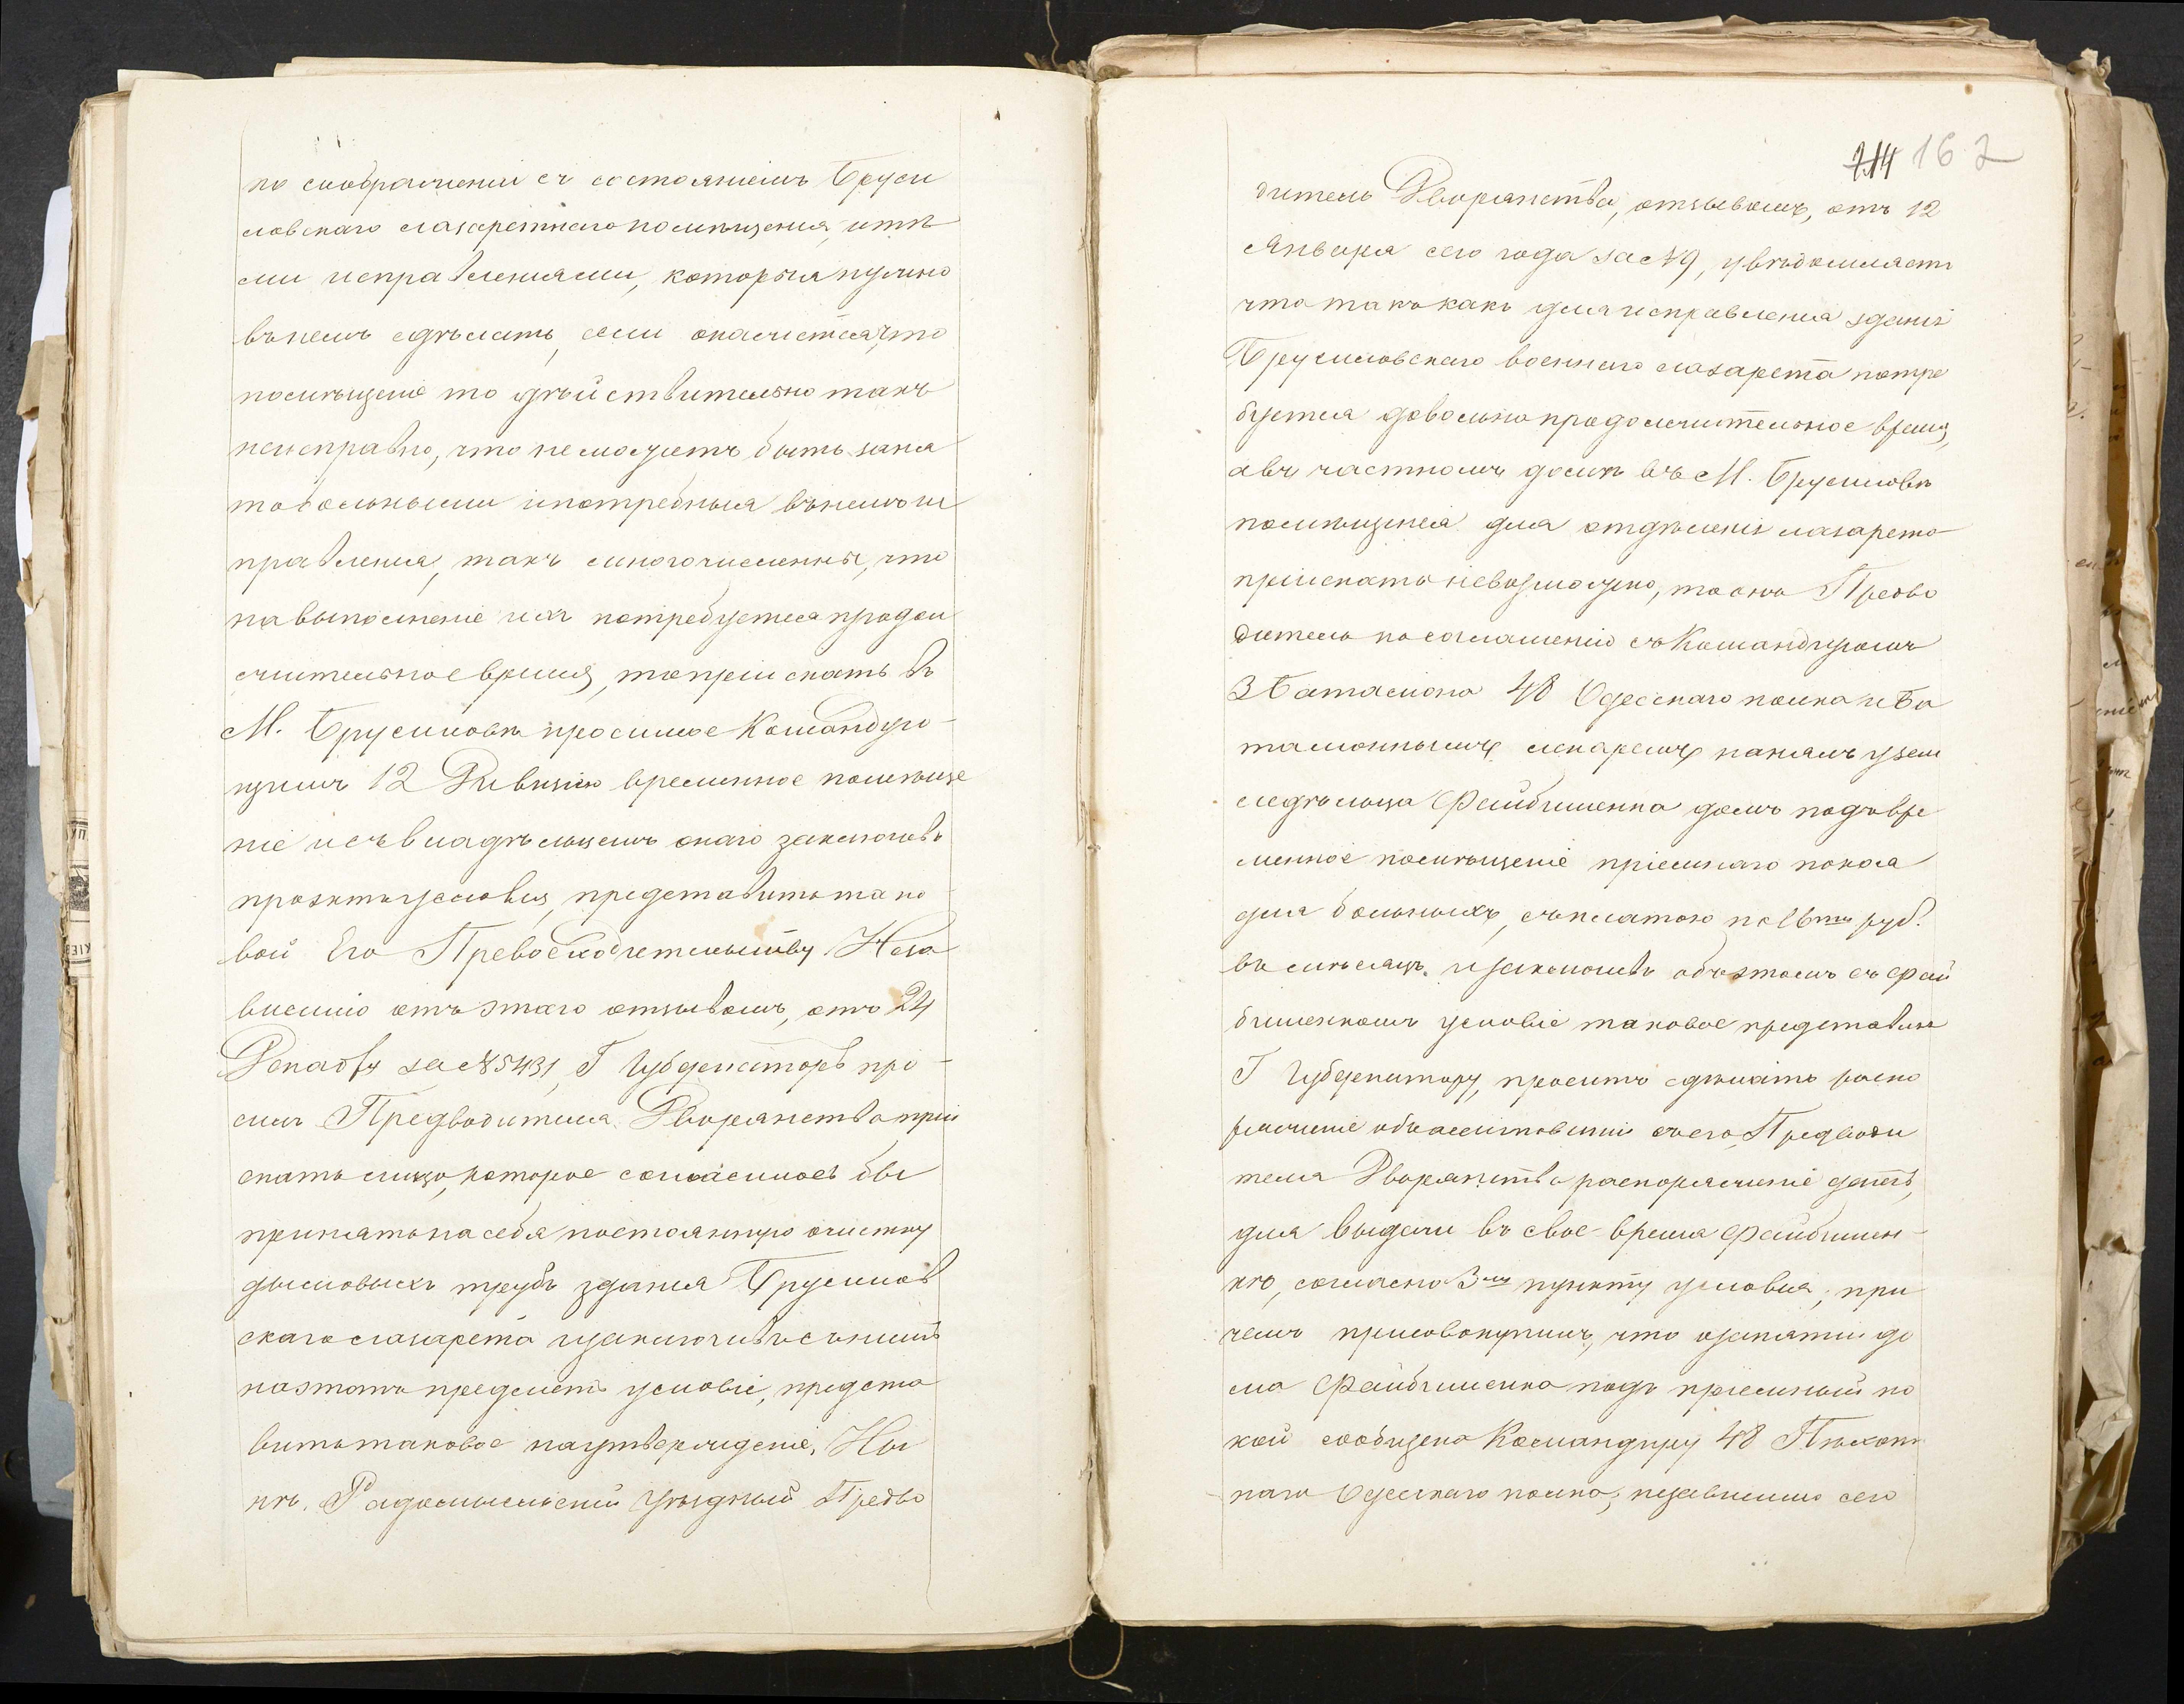 по соображеніи съ состояніемъ Бруси
ловскаго лазаретнаго помѣщенія, и тѣ
ми исправленіями, которыя нужно
въ немъ сдѣлать, если окажется, что
помѣщеніе то дѣйствительно такъ
неисправно, что не можетъ быть заня
то больными и потребныя въ немъ ис
правленія, такъ многочисленны, что
на выполненіе ихъ потребуется продол
жительное время, то пріискать въ
М. Брусиловѣ просимое Командую-
щимъ 12 Дивизіею временное помѣще
ніе и съ владѣльцемъ онаго заключивъ
проэктъ условія, представить тако-
вой Его Превосходительству. Неза
висимо отъ этаго отзывомъ, отъ 24
Декабря за №5431, Г Губернаторъ про-
силъ Предводителя Дворянства прій
скать лицо, которое согласилось бы
принять на себя постоянную очистку
дымовыхъ трубъ зданія Брусилов
скаго лазарета и заключивъ съ нимъ
на этотъ предметъ условіе, предста
вить таковое на утвержденіе. Ны
нѣ. Радомысльскій Уѣздный Предво
714 162
дитель Дворянства, отзывомъ, отъ 12
Января сего года за №9, увѣдомляетъ
что такъ какъ для исправленія зданія
Брусиловскаго военнаго лазарета потре
буется довольно продолжительное время,
а въ частномъ домѣ въ М. Брусиловѣ
помѣщенія для отдѣленія лазарета
пріискать невозможно, то онъ Предво
дитель по соглашенію съ Командиромъ
3 Баталіона 48 Одесскаго полка и Ба
таліоннымъ лекаремъ нанялъ у земле
владѣльца Файбишенка домъ подъ вре
менное помѣщеніе пріемнаго покоя
для больныхъ, съ платою по 16ти руб.
въ мѣсяцъ. и заключивъ объ этомъ съ Фай
бишенкомъ условіе таковое представилъ
Г Губернатору, проситъ сдѣлать распо
ряженіе объ ассигнованіи въ его, Предводи
теля Дворянства распоряженіе денегъ,
для выдачи въ свое время Файбишен-
кѣ, согласно 3му пункту условія; при
чемъ присовокупилъ, что о занятіи до
ма Файбишенка подъ пріемный по
кой сообщено Командиру 48 Пѣхот
наго Одесскаго полка; независимо сего